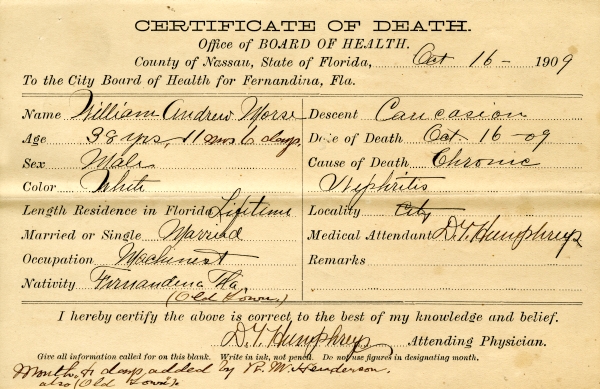 CERTIFICATE OF DEATH.
Office of BOARD OF HEALTH.
County of Nassau, State of Florida, Oct 16 - 1909
To the City Board of Health for Fernandina, Fla.
Name William Andrew Morse
Age 38 yrs, 11 mos 6 days,
Sex Male
Color White
Length Residence in Florida Lifetime
Married or Single Married
Occupation Machinest
Nativity Fernandina Fla
(Old Town.)
Descent Caucasion
Date of Death Oct 16-09
Cause of Death Chronic
Nephritis
Locality City
Medical Attendant D.T. Humphreys
Remarks
I hereby certify the above is correct to the best of my knowledge and belief.
D.T. Humphreys Attending Physician.
Give all information called for on this blank. Write in ink, not pencil. Do not use figures in designating month.
Months & days added by R. M. Henderson.
also (Old Town).